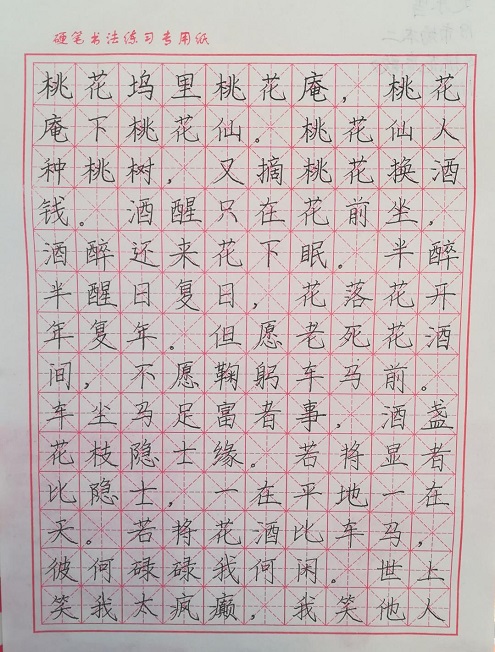 硬笔书法练习专用纸
桃花坞里桃花庵，桃花
庵下桃花仙。桃花仙人
种桃树，又摘桃花换酒
钱。酒醒只在花前坐，
酒醉还来花下眠。半醉
半醒日复日，花落花开
年复年。但愿老死花酒
间，不愿鞠躬车马前。
车尘马足富者事，酒盏
花枝隐士缘。若将显者
比隐士，一在平地一在
天。若将花酒比车马，
彼何碌碌我何闲。世上
笑我太疯癫，我笑他人